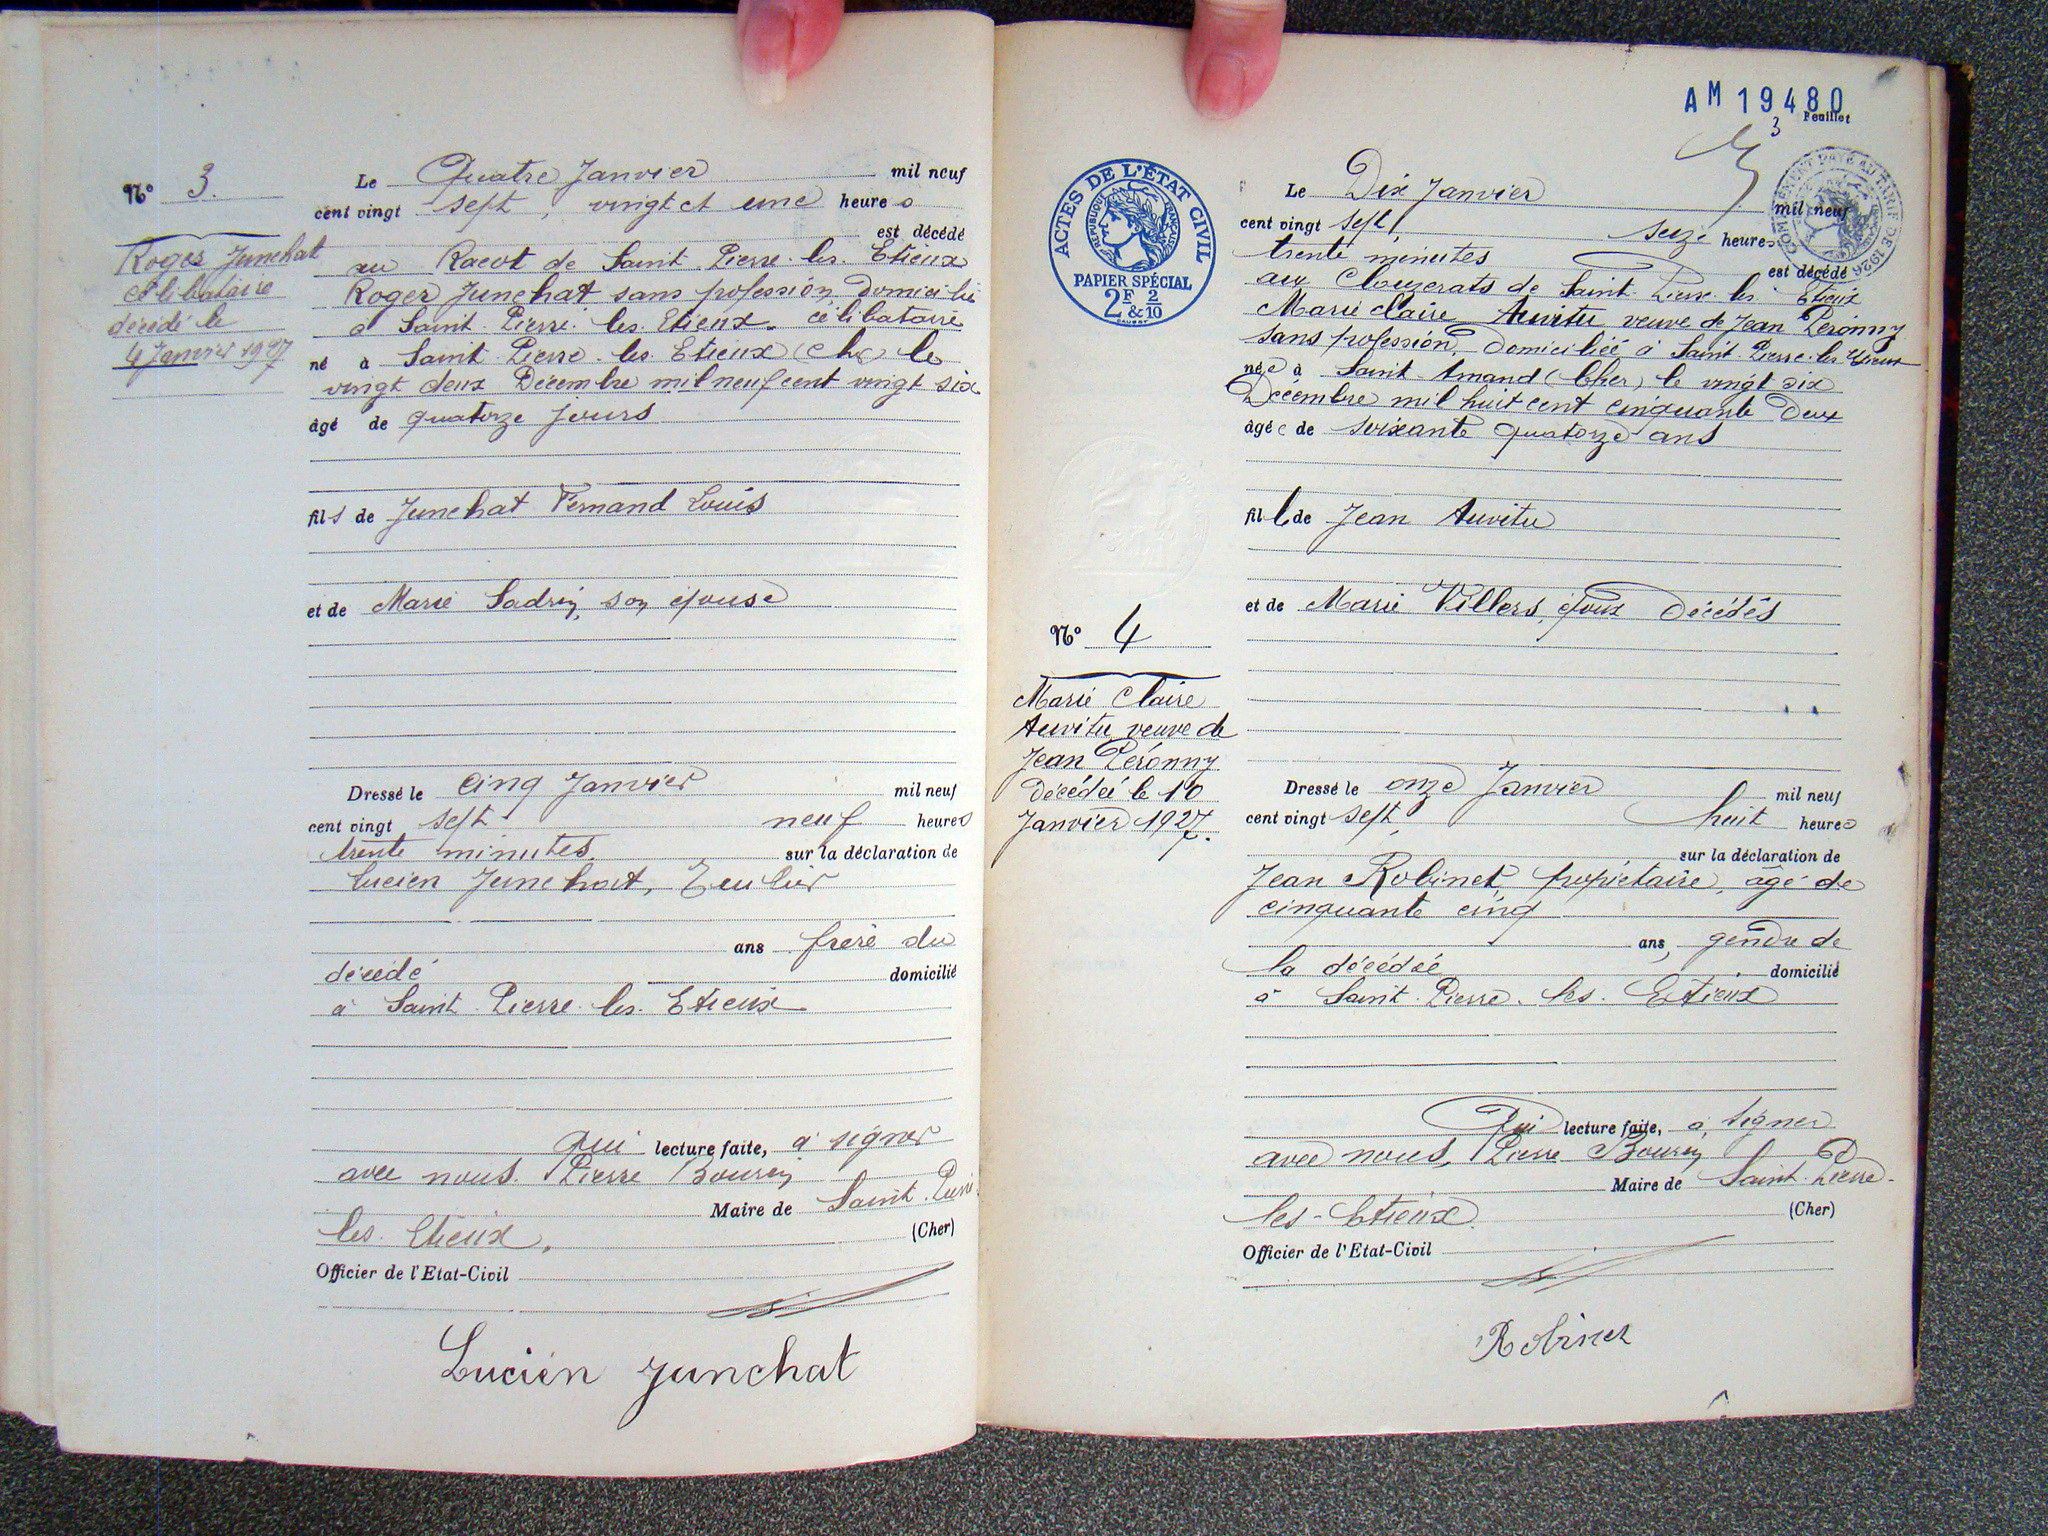 Nº 3.
Roger Junchat
célibataire
décédé le
4 Janvier 1927
Le Quatre Janvier mil neuf
cent vingt sept, vingt et une heures
est décédé
au Racot de Saint-Pierre-les-Etieux
Roger Junchat sans profession, domicilié
à Saint-Pierre-les-Etieux célibataire
né à Saint-Pierre-les-Etieux (Cher) le
vingt deux Décembre mil neuf cent vingt six
âgé de quatorze jours
fils de Junchat Fernand Louis
et de Marie Sadrin, son épouse
Dressé le cinq Janvier mil neuf
cent vingt sept neuf heures
trente minutes sur la déclaration de
Lucien Junchat,
ans frère du
décédé domicilié
à Saint-Pierre-les-Etieux
qui lecture faite, a signer
avec nous. Pierre Bourin
Maire de Saint-Pierre
les-Etieux. (Cher)
Officier de l'Etat-Civil
Lucien Junchat
AM 19480
Feuillet
3
ACTES DE L'ÉTAT CIVIL
RÉPUBLIQUE FRANÇAISE
PAPIER SPÉCIAL
2F & 2/10
Nº 4
Marie Claire
Auvitu veuve de
Jean Péronny
décédée le 10
Janvier 1927.
Le Dix Janvier mil neuf
cent vingt sept, seize heures
trente minutes est décédé
aux Clouzerats de Saint-Pierre-les-Etieux
Marie Claire Auvitu veuve de Jean Péronny
sans profession, domiciliée à Saint-Pierre-les-Etieux
née à Saint-Amand (Cher) le vingt six
Décembre mil huit cent cinquante deux
âgée de soixante quatorze ans
fille de Jean Auvitu
et de Marie Villers, époux décédés
Dressé le onze Janvier mil neuf
cent vingt sept, huit heures
sur la déclaration de
Jean Robinet, propriétaire, agé de
cinquante cinq
ans, gendre de
la décédée domicilié
à Saint-Pierre-les-Etieux
Qui lecture faite, a signer
avec nous, Pierre Bourin,
Maire de Saint-Pierre-
les-Etieux. (Cher)
Officier de l'Etat-Civil
Robinet